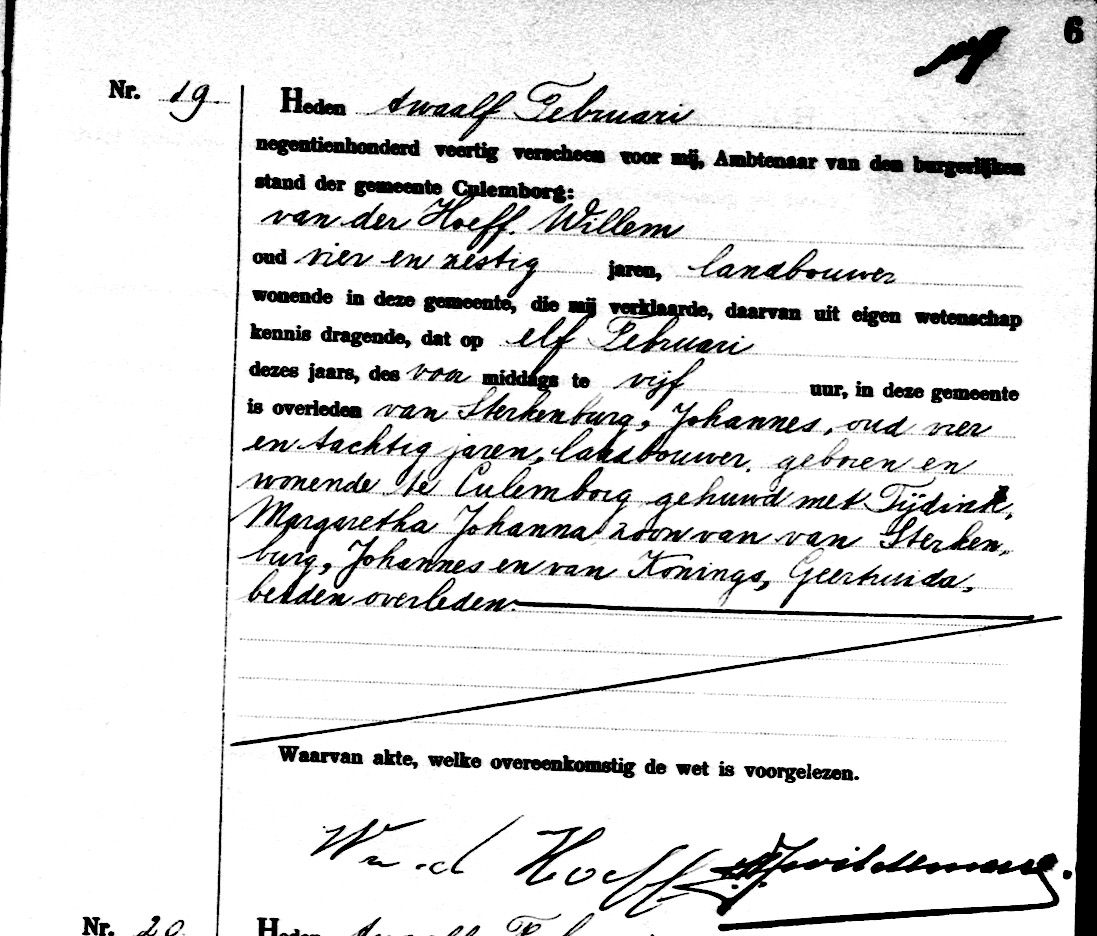 6
Nr. 19.
Heden twaalf Februari
negentienhonderd veertig verscheen voor mij, Ambtenaar van den burgerlijken
stand der gemeente Culemborg:
van der Hoeff. Willem
oud vier en zestig jaren, landbouwer
wonende in deze gemeente, die mij verklaarde, daarvan uit eigen wetenschap
kennis dragende, dat op elf Februari
dezes jaars, des voor middags te vijf uur, in deze gemeente
is overleden van Sterkenburg, Johannes, oud vier
en tachtig jaren, landbouwer, geboren en
wonende te Culemborg gehuwd met Tijdink,
Margaretha Johanna zoon van van Sterken-
burg, Johannes en van Konings, Geertruida,
beiden overleden.
Waarvan akte, welke overeenkomstig de wet is voorgelezen.
W v. d Hoeff
Nr. 20.
Heden twaalf Feb